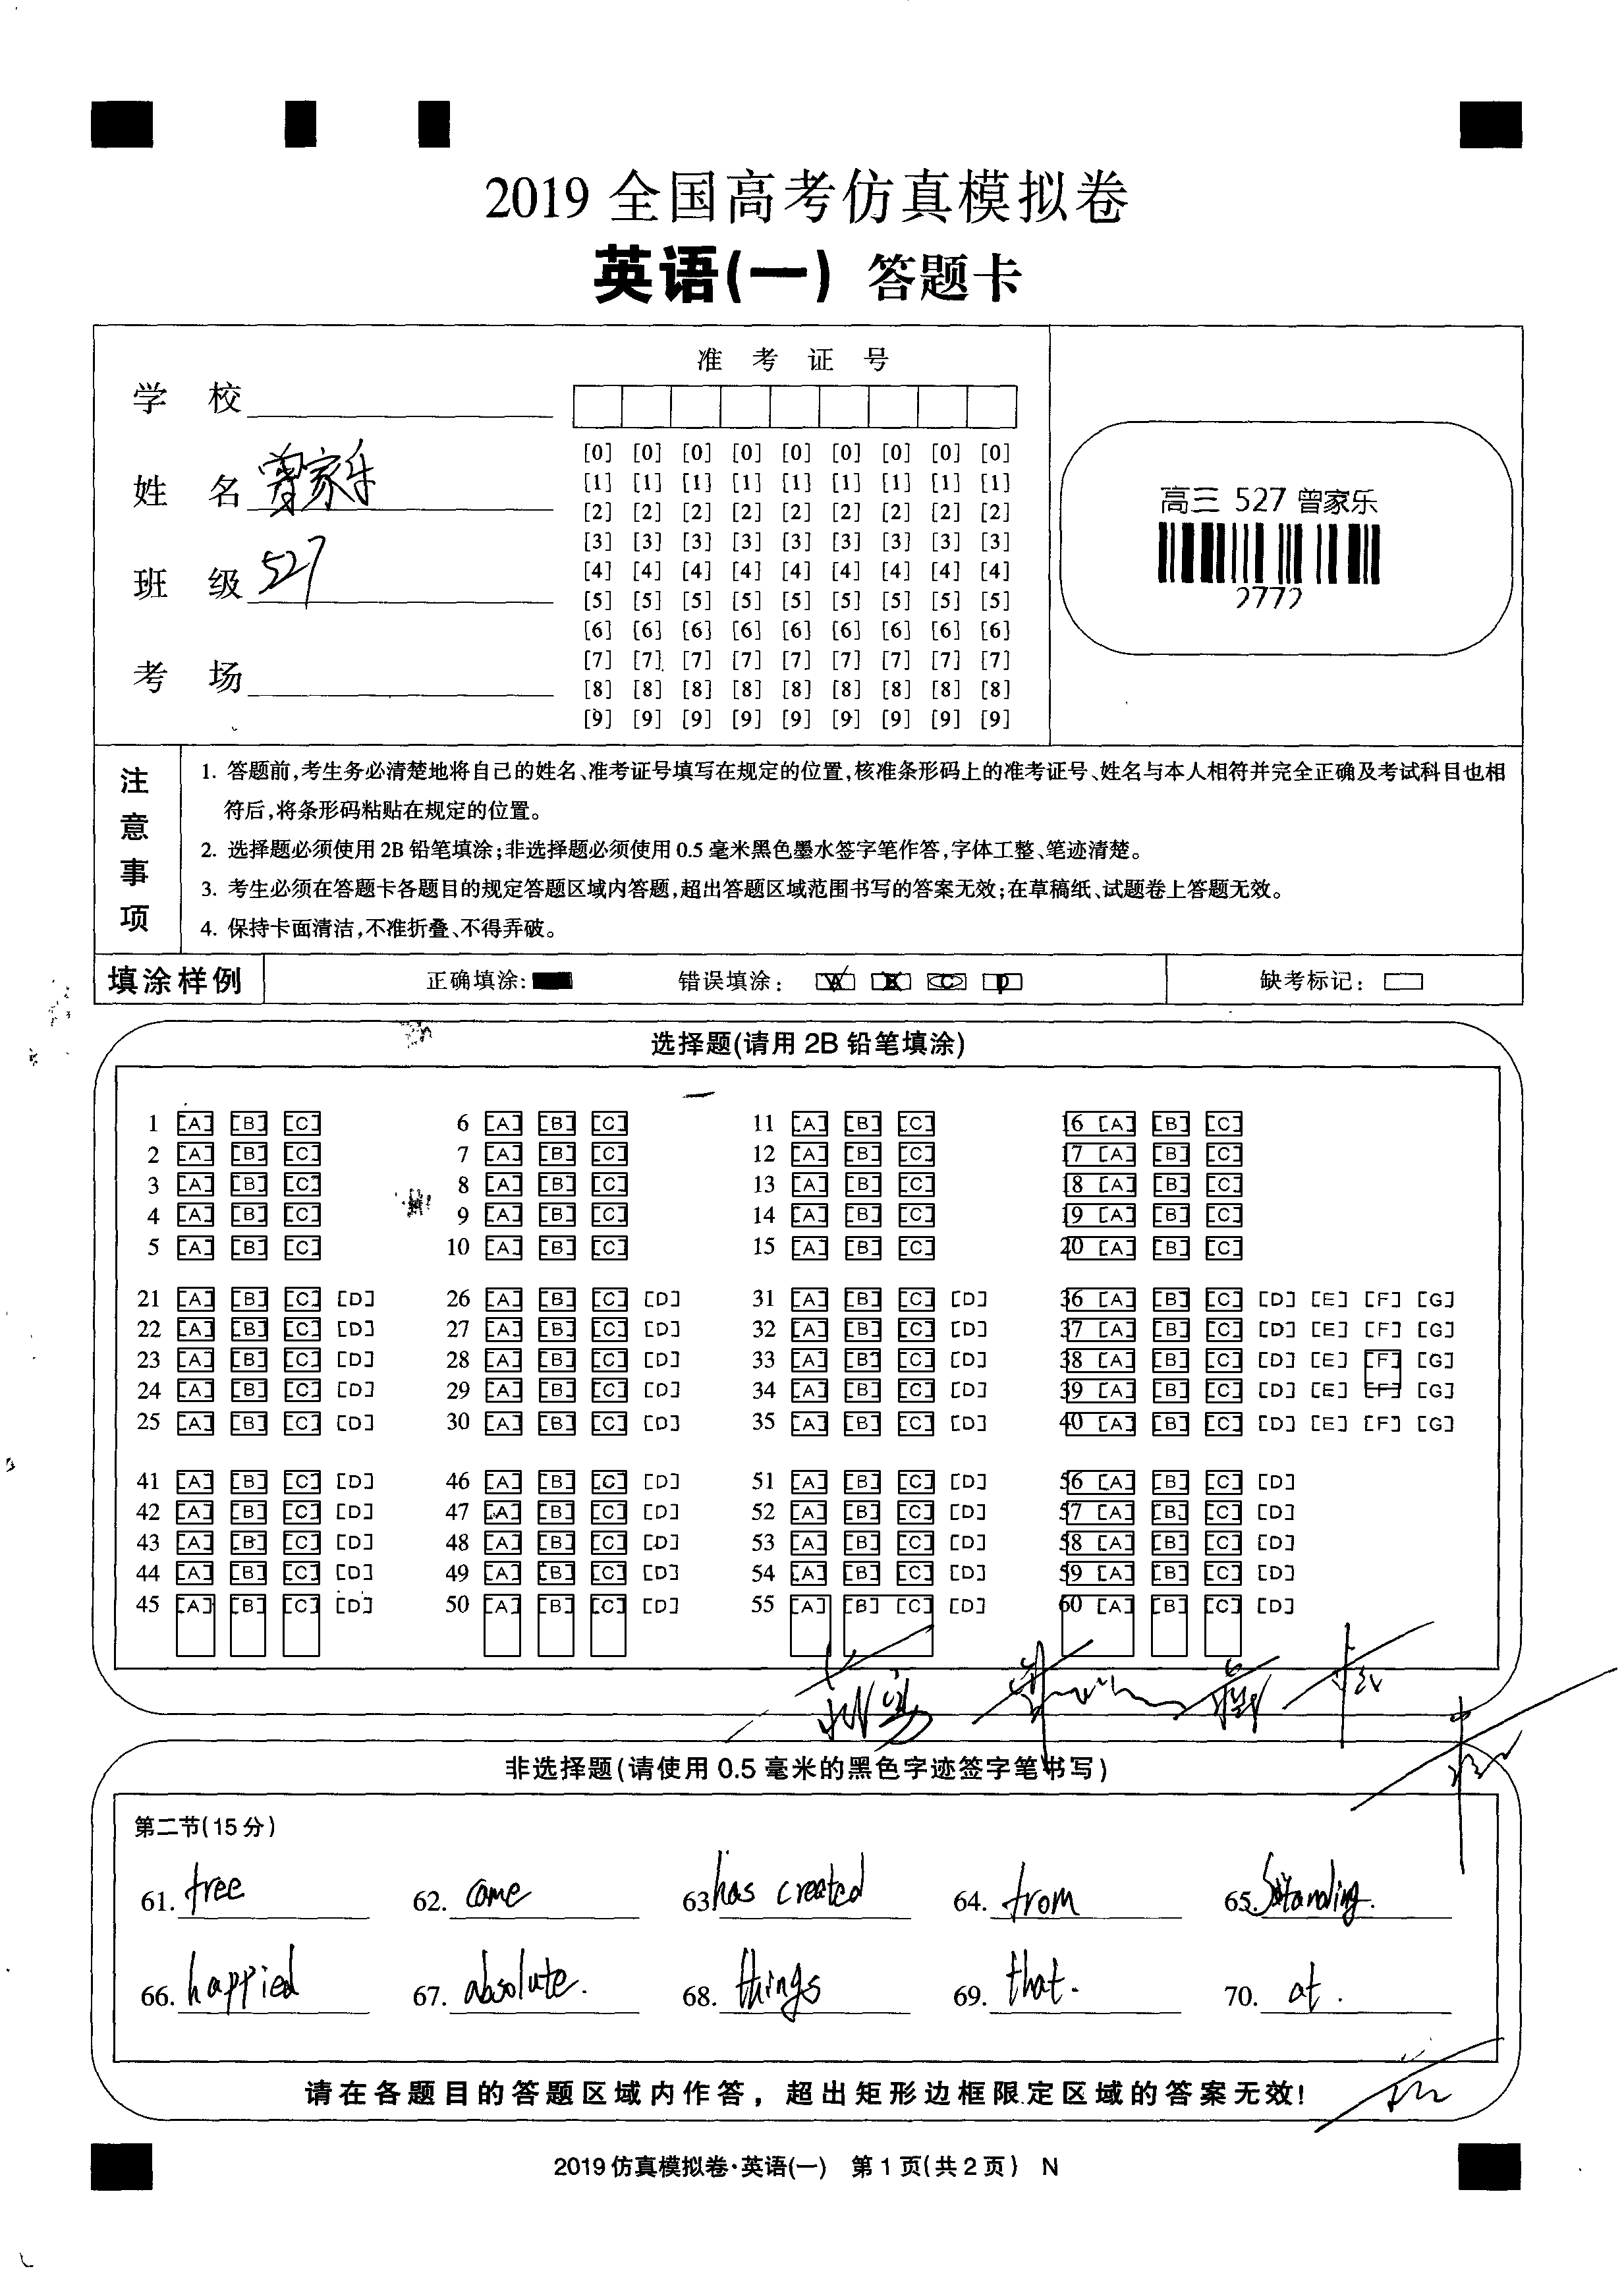 2019 全国高考仿真模拟卷
英语(一) 答题卡
准 考 证 号
学 校
姓 名 曾家乐
班 级 527
考 场
[0] [0] [0] [0] [0] [0] [0] [0] [0]
[1] [1] [1] [1] [1] [1] [1] [1] [1]
[2] [2] [2] [2] [2] [2] [2] [2] [2]
[3] [3] [3] [3] [3] [3] [3] [3] [3]
[4] [4] [4] [4] [4] [4] [4] [4] [4]
[5] [5] [5] [5] [5] [5] [5] [5] [5]
[6] [6] [6] [6] [6] [6] [6] [6] [6]
[7] [7] [7] [7] [7] [7] [7] [7] [7]
[8] [8] [8] [8] [8] [8] [8] [8] [8]
[9] [9] [9] [9] [9] [9] [9] [9] [9]
高三 527 曾家乐
2772
注意事项
1. 答题前,考生务必清楚地将自己的姓名、准考证号填写在规定的位置,核准条形码上的准考证号、姓名与本人相符并完全正确及考试科目也相
符后,将条形码粘贴在规定的位置。
2. 选择题必须使用 2B 铅笔填涂;非选择题必须使用 0.5 毫米黑色墨水签字笔作答,字体工整、笔迹清楚。
3. 考生必须在答题卡各题目的规定答题区域内答题,超出答题区域范围书写的答案无效;在草稿纸、试题卷上答题无效。
4. 保持卡面清洁,不准折叠、不得弄破。
填涂样例 正确填涂: 错误填涂: A B C D 缺考标记:
选择题(请用 2B 铅笔填涂)
1 [A] [B] [C] 6 [A] [B] [C] 11 [A] [B] [C] 16 [A] [B] [C]
2 [A] [B] [C] 7 [A] [B] [C] 12 [A] [B] [C] 17 [A] [B] [C]
3 [A] [B] [C] 8 [A] [B] [C] 13 [A] [B] [C] 18 [A] [B] [C]
4 [A] [B] [C] 9 [A] [B] [C] 14 [A] [B] [C] 19 [A] [B] [C]
5 [A] [B] [C] 10 [A] [B] [C] 15 [A] [B] [C] 20 [A] [B] [C]
21 [A] [B] [C] [D] 26 [A] [B] [C] [D] 31 [A] [B] [C] [D] 36 [A] [B] [C] [D] [E] [F] [G]
22 [A] [B] [C] [D] 27 [A] [B] [C] [D] 32 [A] [B] [C] [D] 37 [A] [B] [C] [D] [E] [F] [G]
23 [A] [B] [C] [D] 28 [A] [B] [C] [D] 33 [A] [B] [C] [D] 38 [A] [B] [C] [D] [E] [F] [G]
24 [A] [B] [C] [D] 29 [A] [B] [C] [D] 34 [A] [B] [C] [D] 39 [A] [B] [C] [D] [E] [F] [G]
25 [A] [B] [C] [D] 30 [A] [B] [C] [D] 35 [A] [B] [C] [D] 40 [A] [B] [C] [D] [E] [F] [G]
41 [A] [B] [C] [D] 46 [A] [B] [C] [D] 51 [A] [B] [C] [D] 56 [A] [B] [C] [D]
42 [A] [B] [C] [D] 47 [A] [B] [C] [D] 52 [A] [B] [C] [D] 57 [A] [B] [C] [D]
43 [A] [B] [C] [D] 48 [A] [B] [C] [D] 53 [A] [B] [C] [D] 58 [A] [B] [C] [D]
44 [A] [B] [C] [D] 49 [A] [B] [C] [D] 54 [A] [B] [C] [D] 59 [A] [B] [C] [D]
45 [A] [B] [C] [D] 50 [A] [B] [C] [D] 55 [A] [B] [C] [D] 60 [A] [B] [C] [D]
非选择题(请使用 0.5 毫米的黑色字迹签字笔书写)
第二节(15 分)
61. free 62. came 63. has created 64. from 65. Standing.
66. happied 67. absolute. 68. things 69. that. 70. at.
请在各题目的答题区域内作答，超出矩形边框限定区域的答案无效!
2019 仿真模拟卷·英语(一) 第 1 页(共 2 页) N